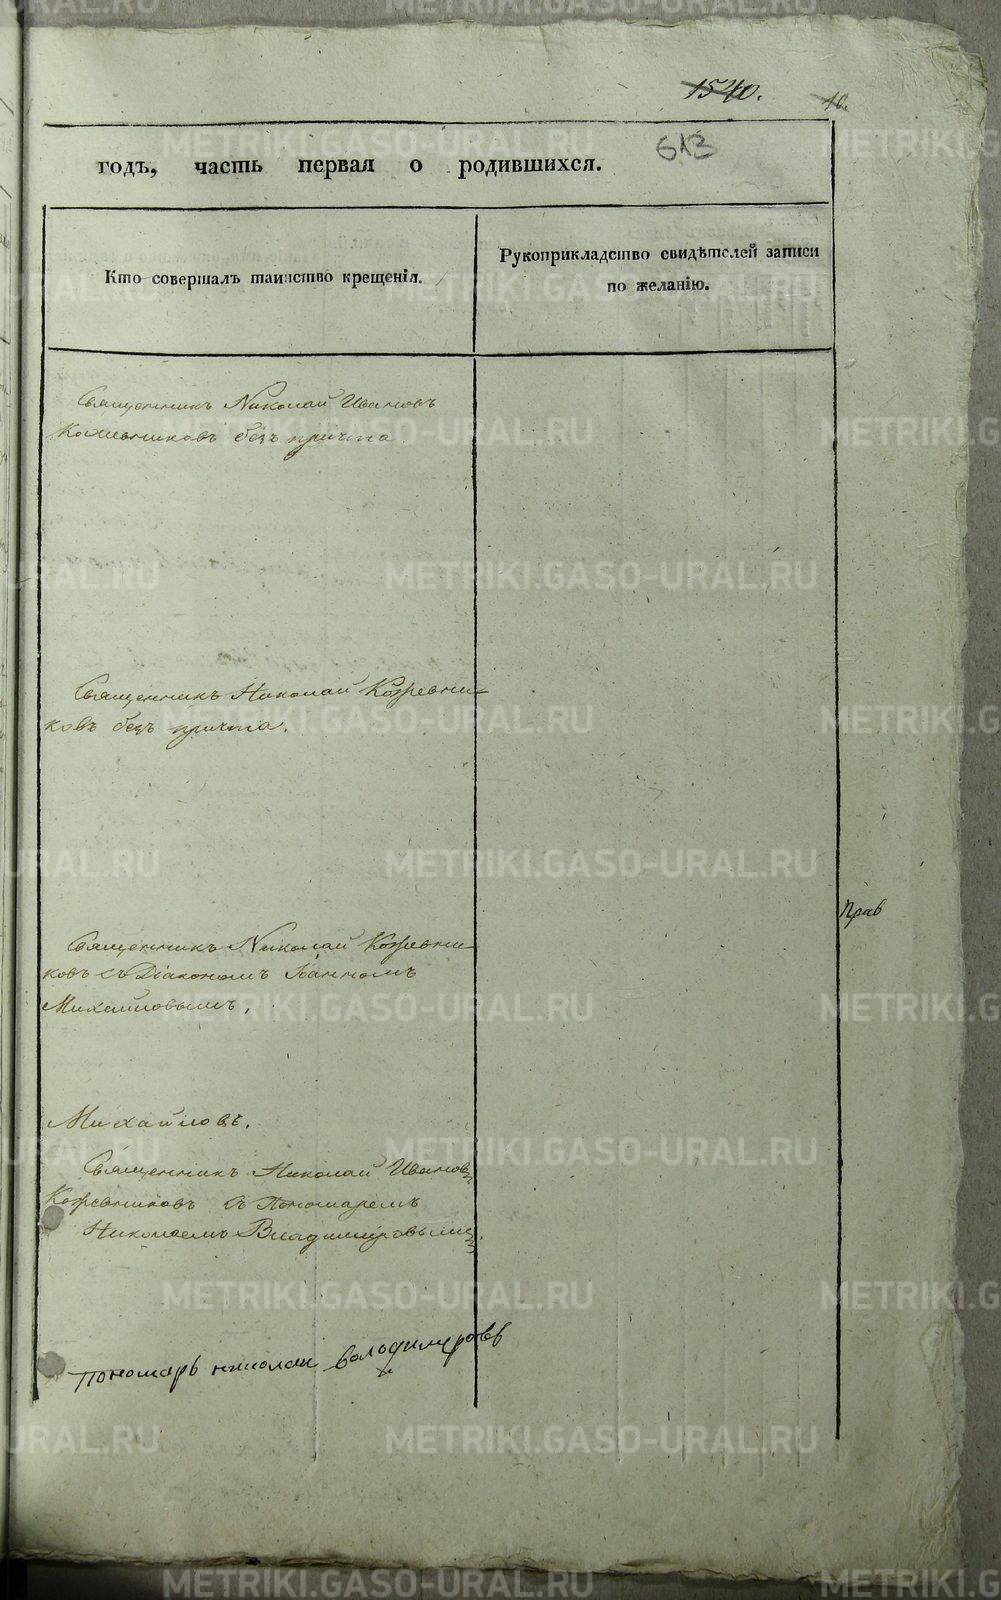 1540.
10.
613
годъ, часть первая о родившихся.
Кто совершалъ таинство крещенія.
Рукоприкладство свидѣтелей записи
по желанію.
Священникъ Николай Ивановъ
Кожевниковъ безъ причта
Священникъ Николай Кожевни-
ковъ безъ причта.
Священникъ Николай Кожевни-
ковъ съ Діакономъ Іоанномъ
Михайловымъ.
Прав
Михайловъ.
Священникъ Николай Ивановъ
Кожевниковъ съ Пономаремъ
Николаемъ Владимировымъ.
Пономарь николаи володимеровъ
METRIKI.GASO-URAL.RU